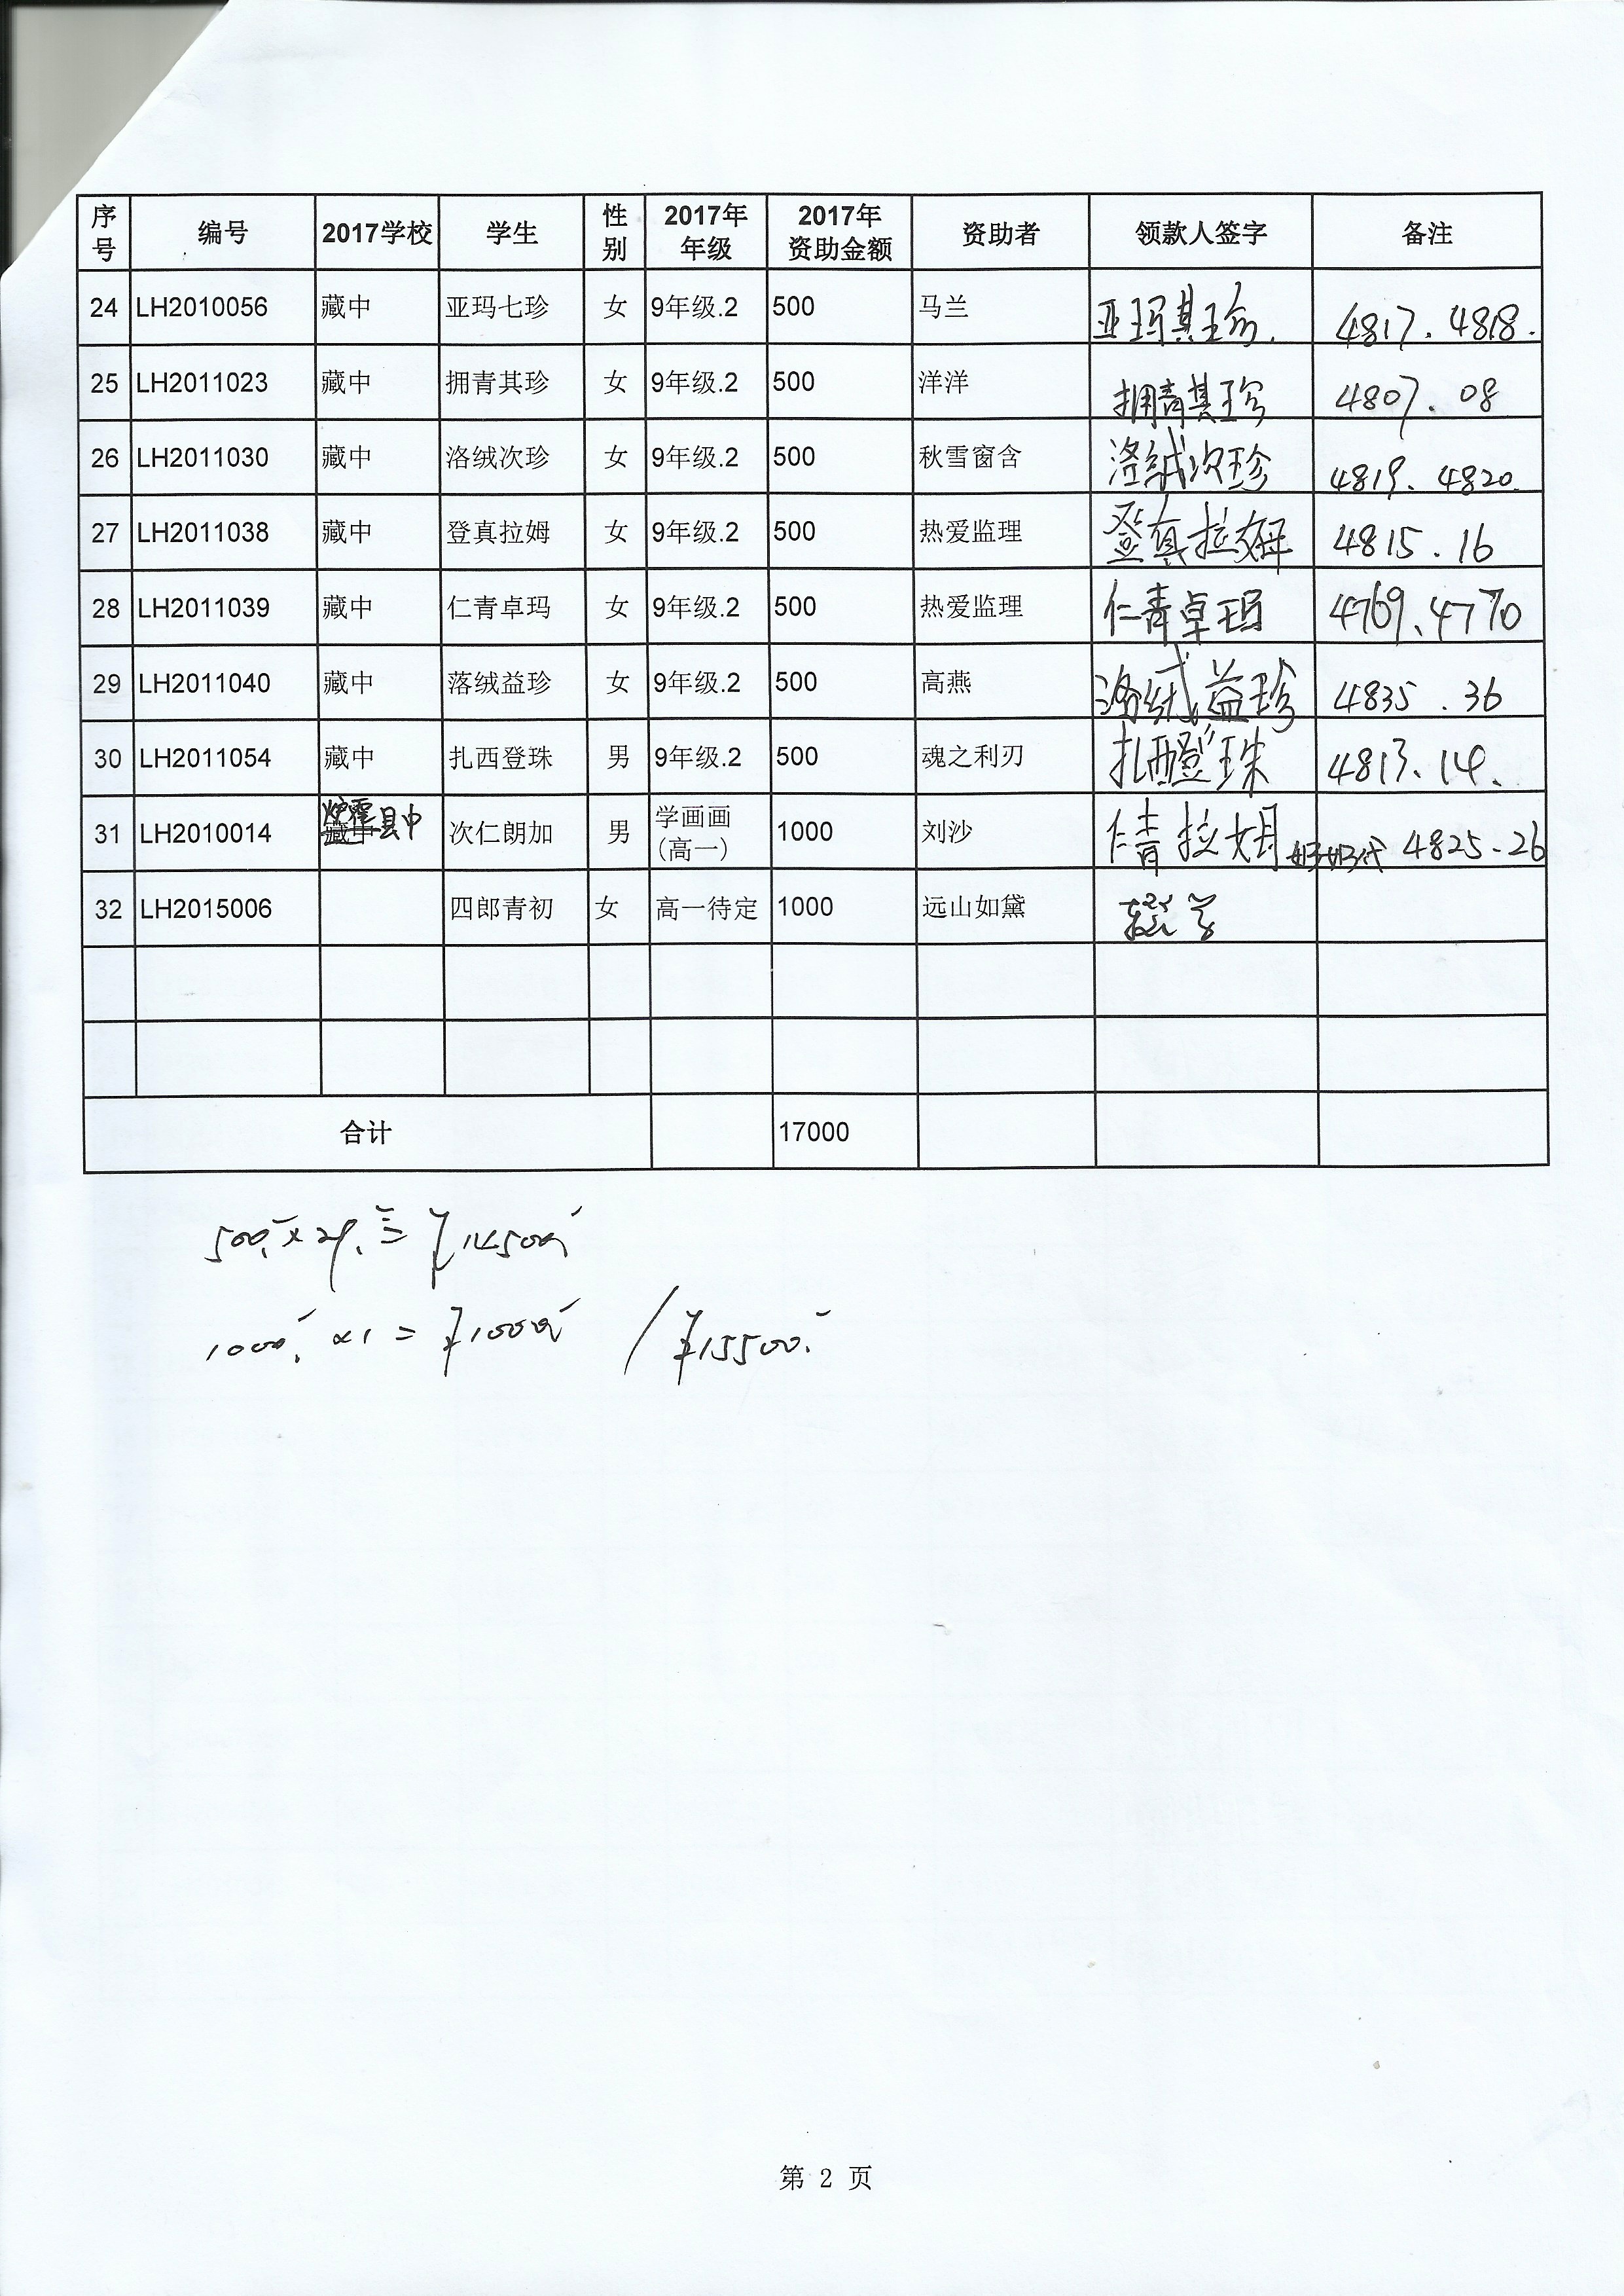 序号 编号 2017学校 学生 性别 2017年年级 2017年资助金额 资助者 领款人签字 备注
24 LH2010056 藏中 亚玛七珍 女 9年级.2 500 马兰 亚玛其珍. 4817. 4818.
25 LH2011023 藏中 拥青其珍 女 9年级.2 500 洋洋 拥青其珍 4807. 08
26 LH2011030 藏中 洛绒次珍 女 9年级.2 500 秋雪窗含 洛绒次珍 4819、4820.
27 LH2011038 藏中 登真拉姆 女 9年级.2 500 热爱监理 登真拉姆 4815.16
28 LH2011039 藏中 仁青卓玛 女 9年级.2 500 热爱监理 仁青卓玛 4769、4770
29 LH2011040 藏中 落绒益珍 女 9年级.2 500 高燕 洛绒益珍 4835.36
30 LH2011054 藏中 扎西登珠 男 9年级.2 500 魂之利刃 扎西登珠 4813、14、
31 LH2010014 藏中 炉霍县中 次仁朗加 男 学画画(高一) 1000 刘沙 仁青拉姆 4825-26
32 LH2015006 四郎青初 女 高一待定 1000 远山如黛 辍学
合计 17000
500 × 29 = ¥14500
1000 × 1 = ¥1000 / ¥15500
第 2 页